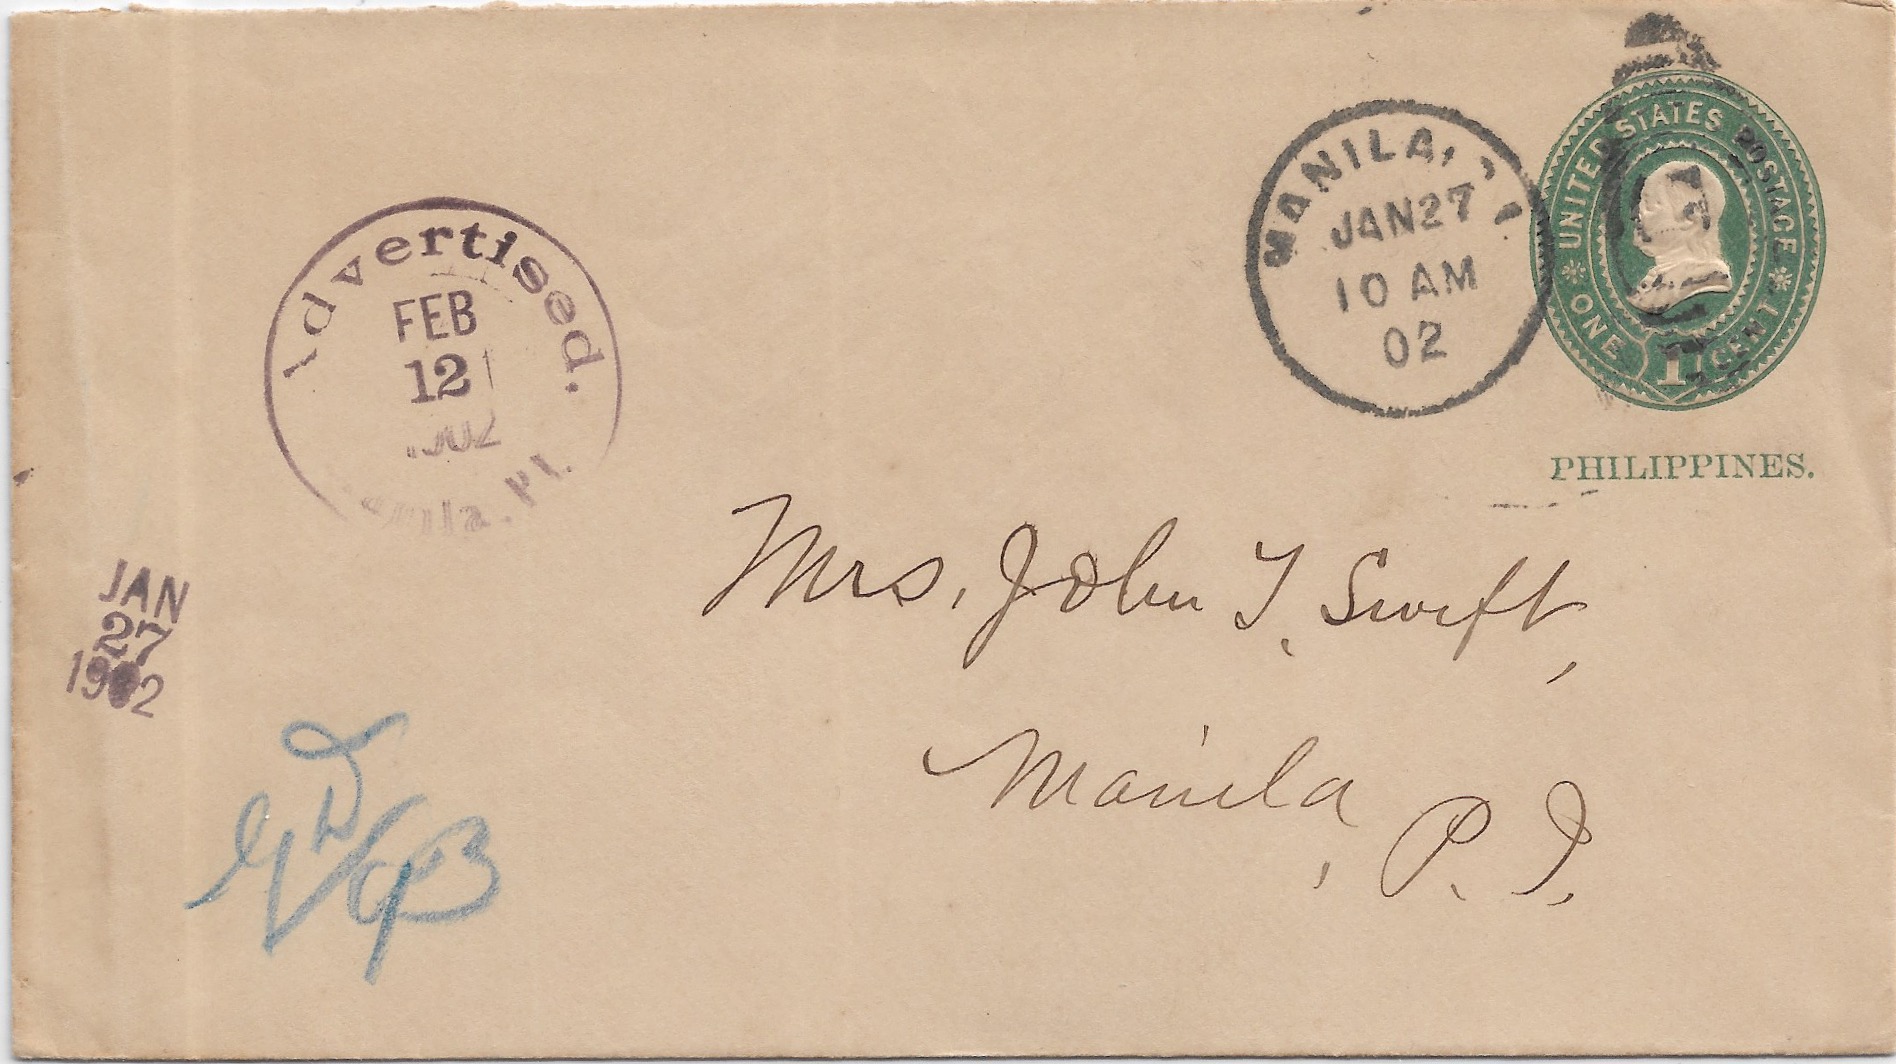 Advertised.
FEB
12
Manila, P.I.
MANILA, P.I.
JAN 27
10 AM
02
UNITED STATES POSTAGE
ONE 1 CENT
PHILIPPINES.
Mrs. John T. Swift,
Manila, P. I.
JAN
27
1902